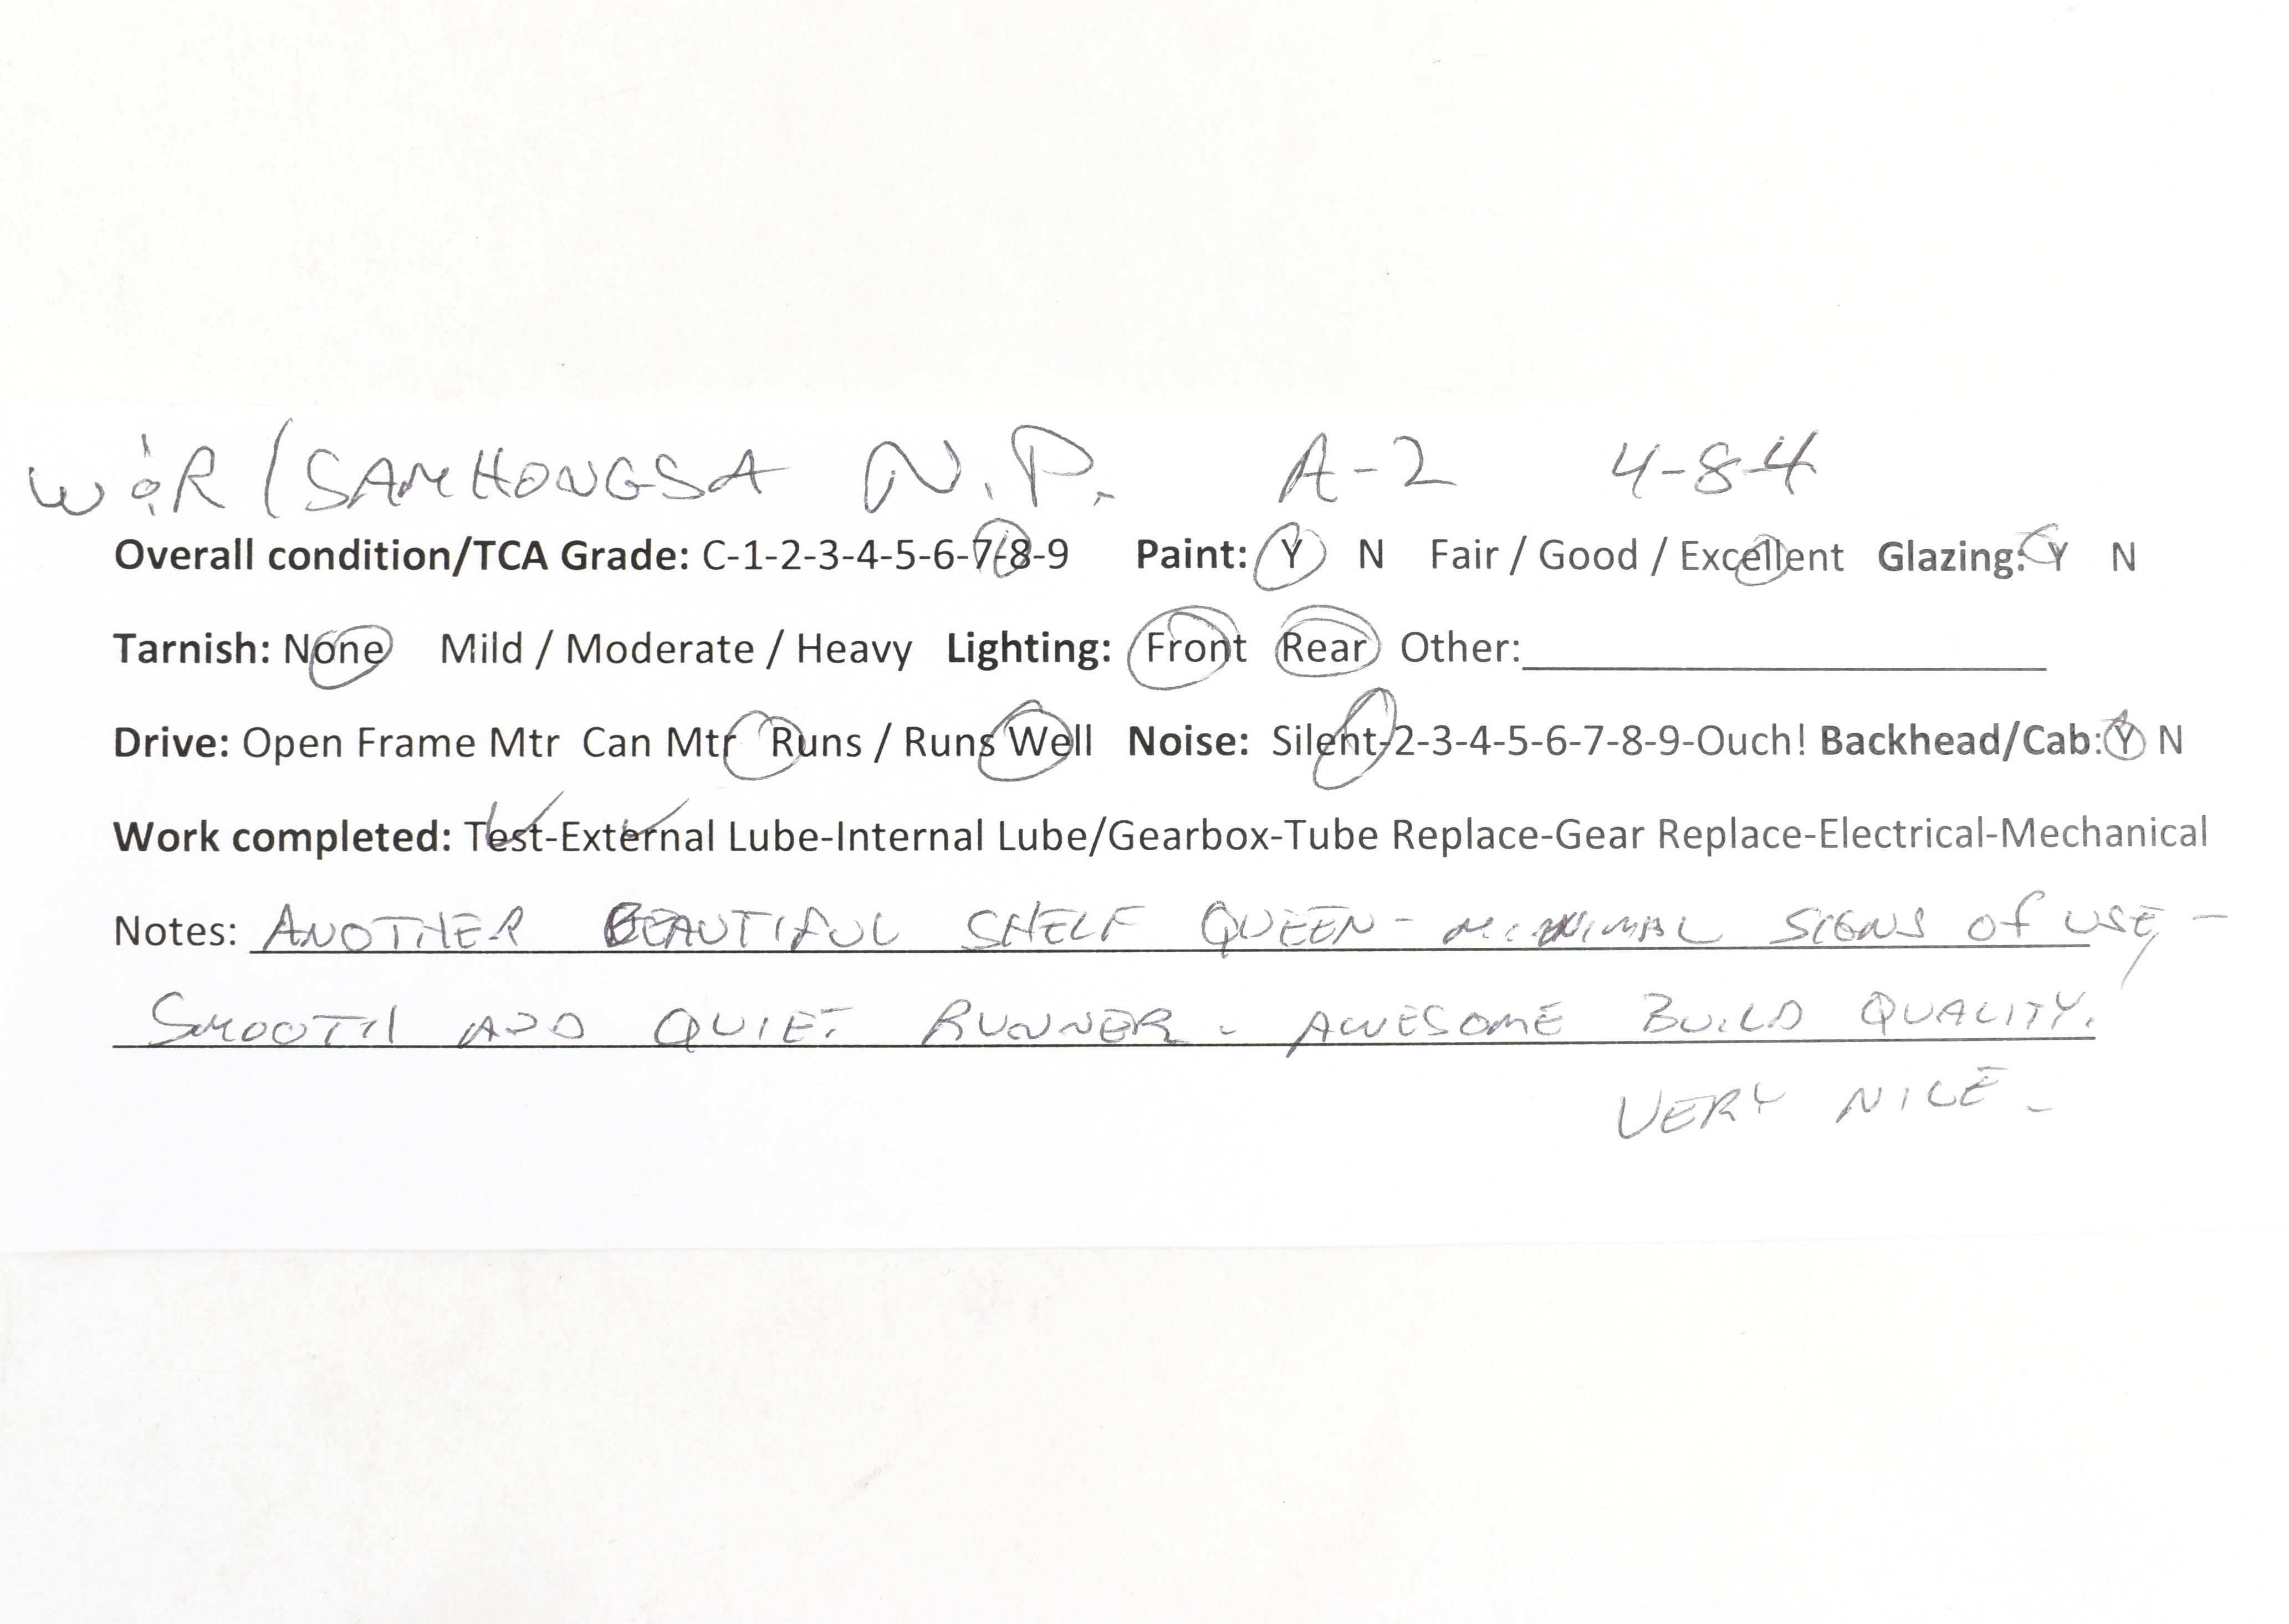 W&R / SAMHONGSA N.P. A-2 4-8-4
Overall condition/TCA Grade: C-1-2-3-4-5-6-7-8-9 Paint: Y N Fair / Good / Excellent Glazing: Y N
Tarnish: None Mild / Moderate / Heavy Lighting: Front Rear Other:
Drive: Open Frame Mtr Can Mtr Runs / Runs Well Noise: Silent-2-3-4-5-6-7-8-9-Ouch! Backhead/Cab: Y N
Work completed: Test-External Lube-Internal Lube/Gearbox-Tube Replace-Gear Replace-Electrical-Mechanical
Notes: ANOTHER BEAUTIFUL SHELF QUEEN - MINIMAL SIGNS OF USE -
SMOOTH AND QUIET RUNNER - AWESOME BUILD QUALITY.
VERY NICE -